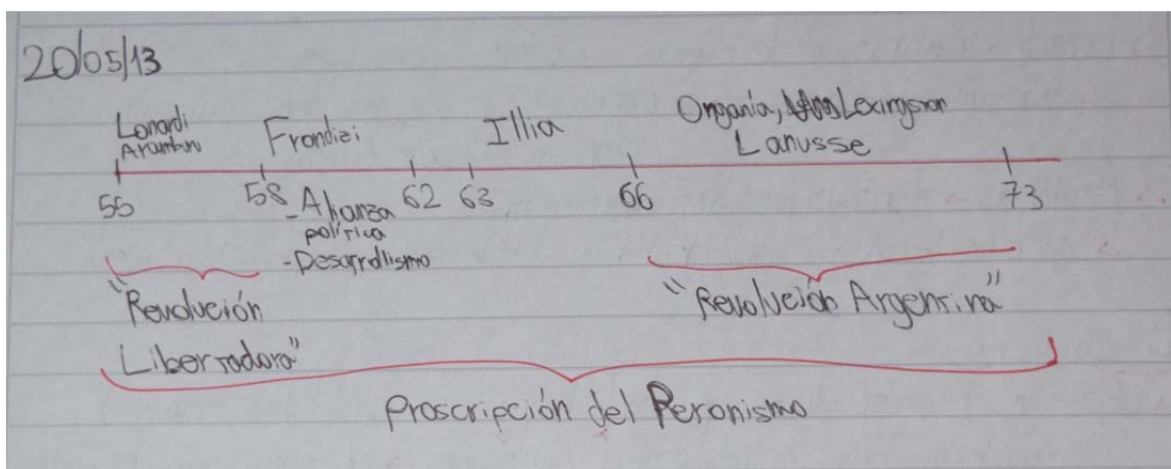 20/05/13
Lonardi
Aramburu
Frondizi
Illia
Ongania, Lexingston
Lanusse
55
58
62
63
66
73
- Alianza
politica
- Desarrollismo
"Revolución
Libertadora"
"Revolución Argentina"
Proscripción del Peronismo